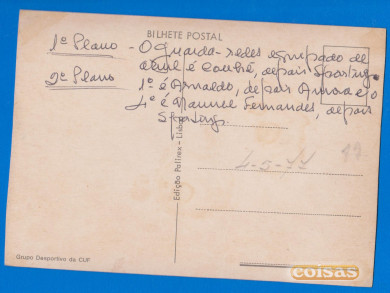 BILHETE POSTAL
1º Plano - O guarda-redes equipado de
azul é Conhé, depois Sporting
2º Plano
1º é Arnaldo, depois
4º é Manuel Fernandes, depois
Sporting.
Edição Palirex - Lisboa
4-5-77
Grupo Desportivo da CUF
coisas